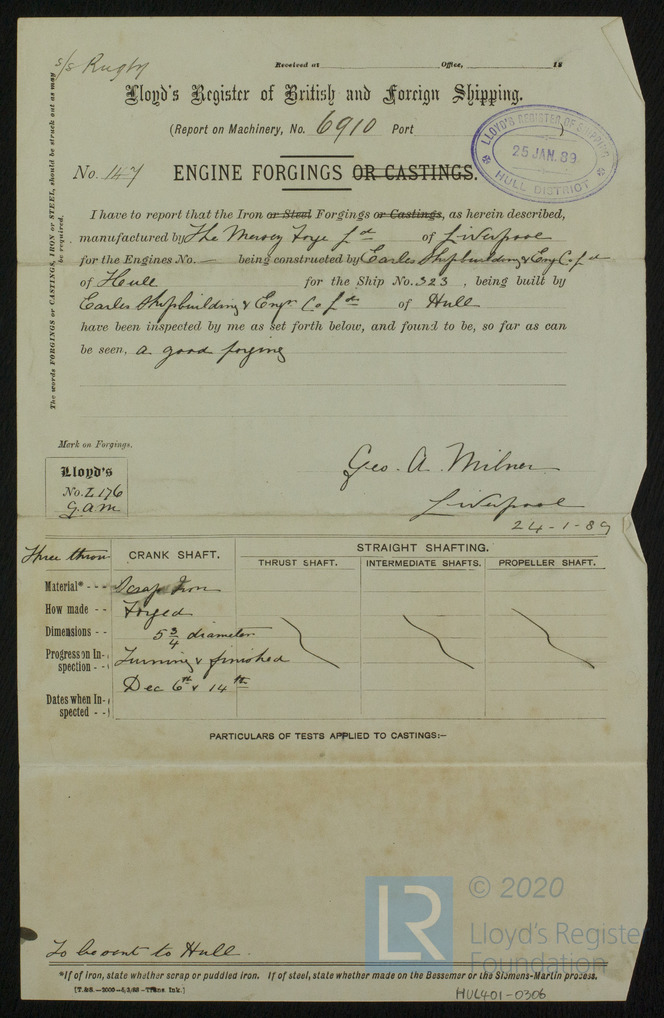 s/s Rugby
Received at Office, 18
Lloyd's Register of British and Foreign Shipping.
(Report on Machinery, No. 6910 Port )
LLOYD'S REGISTER OF SHIPPING
25 JAN. 89
HULL DISTRICT
No. 147 ENGINE FORGINGS OR CASTINGS.
The words FORGINGS or CASTINGS, IRON or STEEL, should be struck out as may be required.
I have to report that the Iron or Steel Forgings or Castings, as herein described,
manufactured by The Mersey Forge Ld of Liverpool
for the Engines No. — being constructed by Earles Shipbuilding & Eng Co. Ld
of Hull for the Ship No. 323, being built by
Earles Shipbuilding & Engr Co Ld of Hull
have been inspected by me as set forth below, and found to be, so far as can
be seen, a good forging
Mark on Forgings.
Lloyd's
No. L 176
G.A.M
Geo. A. Milner
Liverpool
24-1-89
Three throw CRANK SHAFT. STRAIGHT SHAFTING.
THRUST SHAFT. INTERMEDIATE SHAFTS. PROPELLER SHAFT.
Material* - - - Scrap Iron
How made - - Forged
Dimensions - - 5 3/4 diameter
Progress on Inspection - - Turning & finished
Dec 6th & 14th
Dates when Inspected - -
PARTICULARS OF TESTS APPLIED TO CASTINGS:—
To be sent to Hull
*If of iron, state whether scrap or puddled iron. If of steel, state whether made on the Bessemer or the Siemens-Martin process.
HUL401-0306
LR
© 2020
Lloyd's Register
Foundation